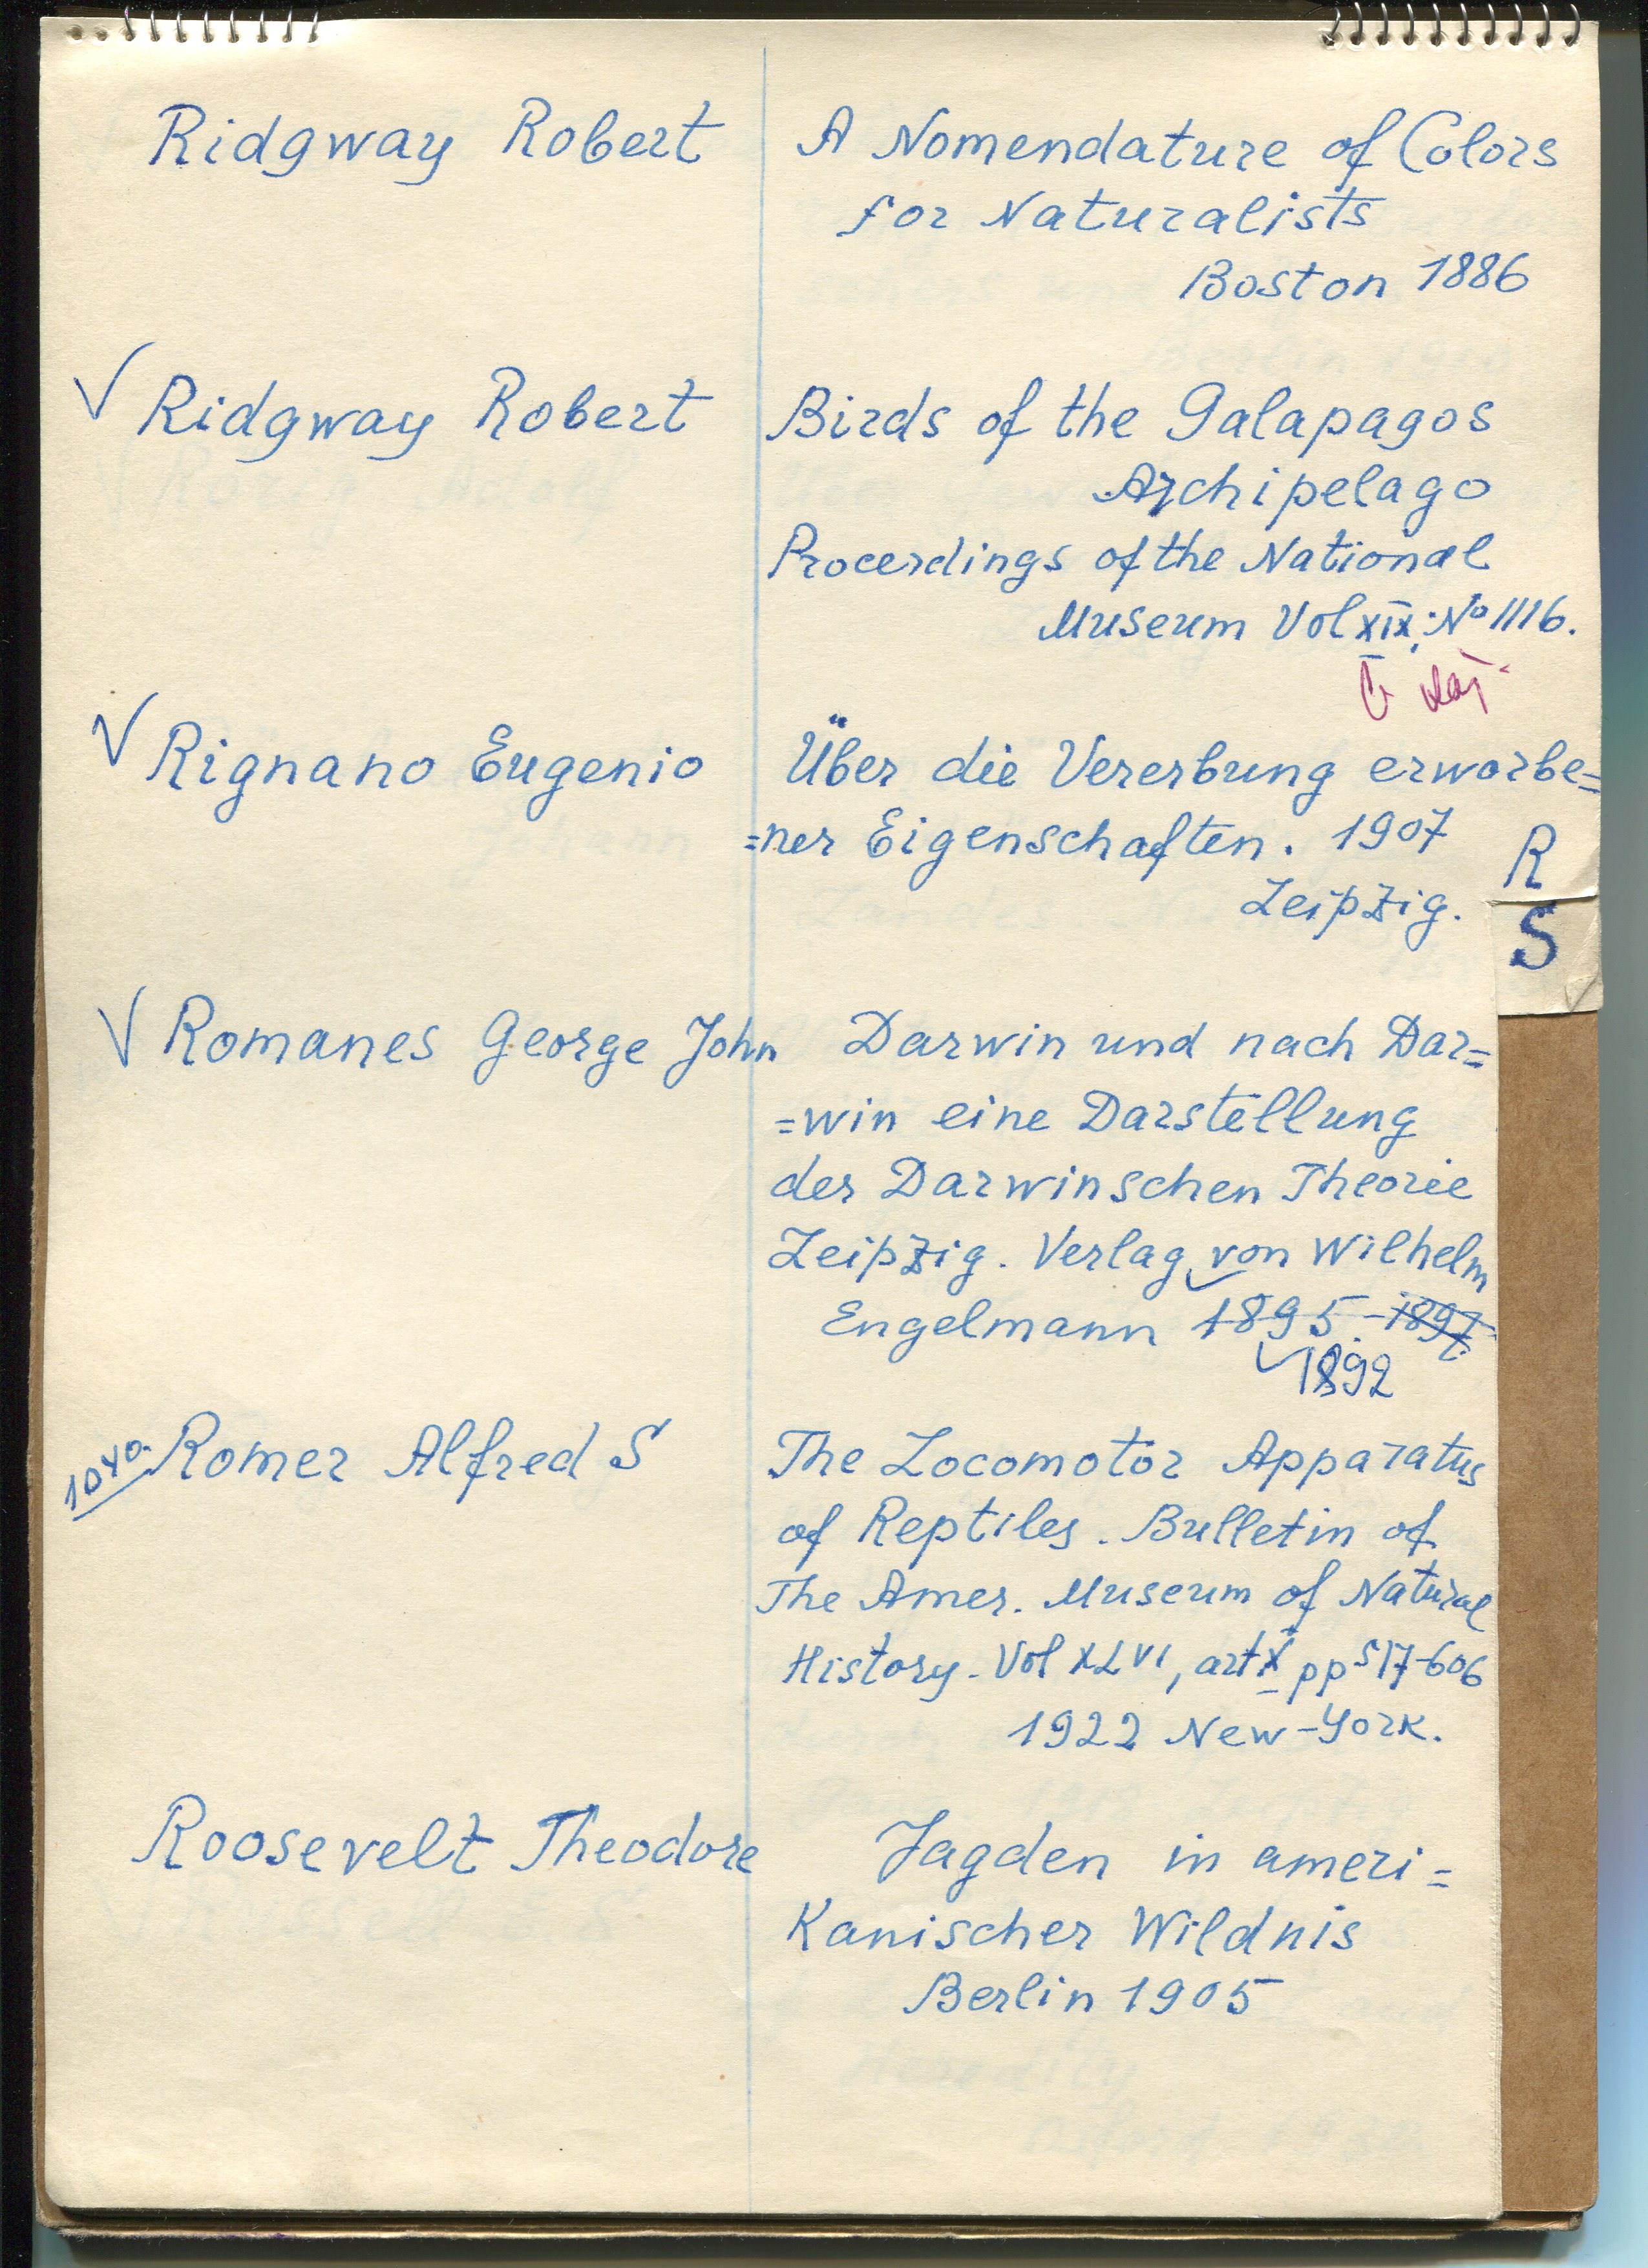 Ridgway Robert
A Nomendature of Colors
for Naturalists
Boston 1886
√ Ridgway Robert
Birds of the Galapagos
Archipelago
Procerdings of the National
Museum Vol XIX; No 1116.
√ Rignano Eugenio
Über die Vererbung erworbe=
=ner Eigenschaften. 1907
Leipzig.
R
S
√ Romanes George John
Darwin und nach Dar=
=win eine Darstellung
der Darwinschen Theorie
Leipzig. Verlag von Wilhelm
Engelmann 1895-1897.
1892
1040. Romer Alfred S
The Locomotor Apparatus
of Reptiles. Bulletin of
The Amer. Museum of Natural
History. Vol XLVI, art X pp 517-606
1922 New-York.
Roosevelt Theodore
Jagden in ameri=
Kanischer Wildnis
Berlin 1905